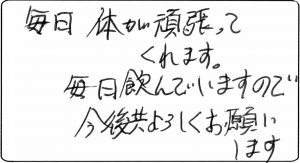 毎日 体が頑張って
くれます。
毎日飲んでいますので
今後共よろしくお願い
します